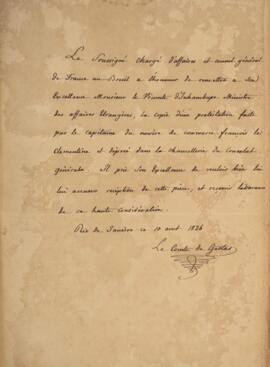 Le Soussigné chargé d'affaires et consul-général
de France au Brésil a l'honneur de remettre a Son
Excellence Monsieur le Vicomte d'Inhambupe Ministre
des affaires Etrangères, la copie d'une protestation faite
par le capitaine du navire de commerce français la
Clémentine et déposé dans la chancellerie du Consulat
générale. Il prie Son Excellence de vouloir bien
lui accuser réception de cette pièce, et recevoir
de sa haute considération.
Rio de Janeiro ce 10 1826
Le Comte de Gestas